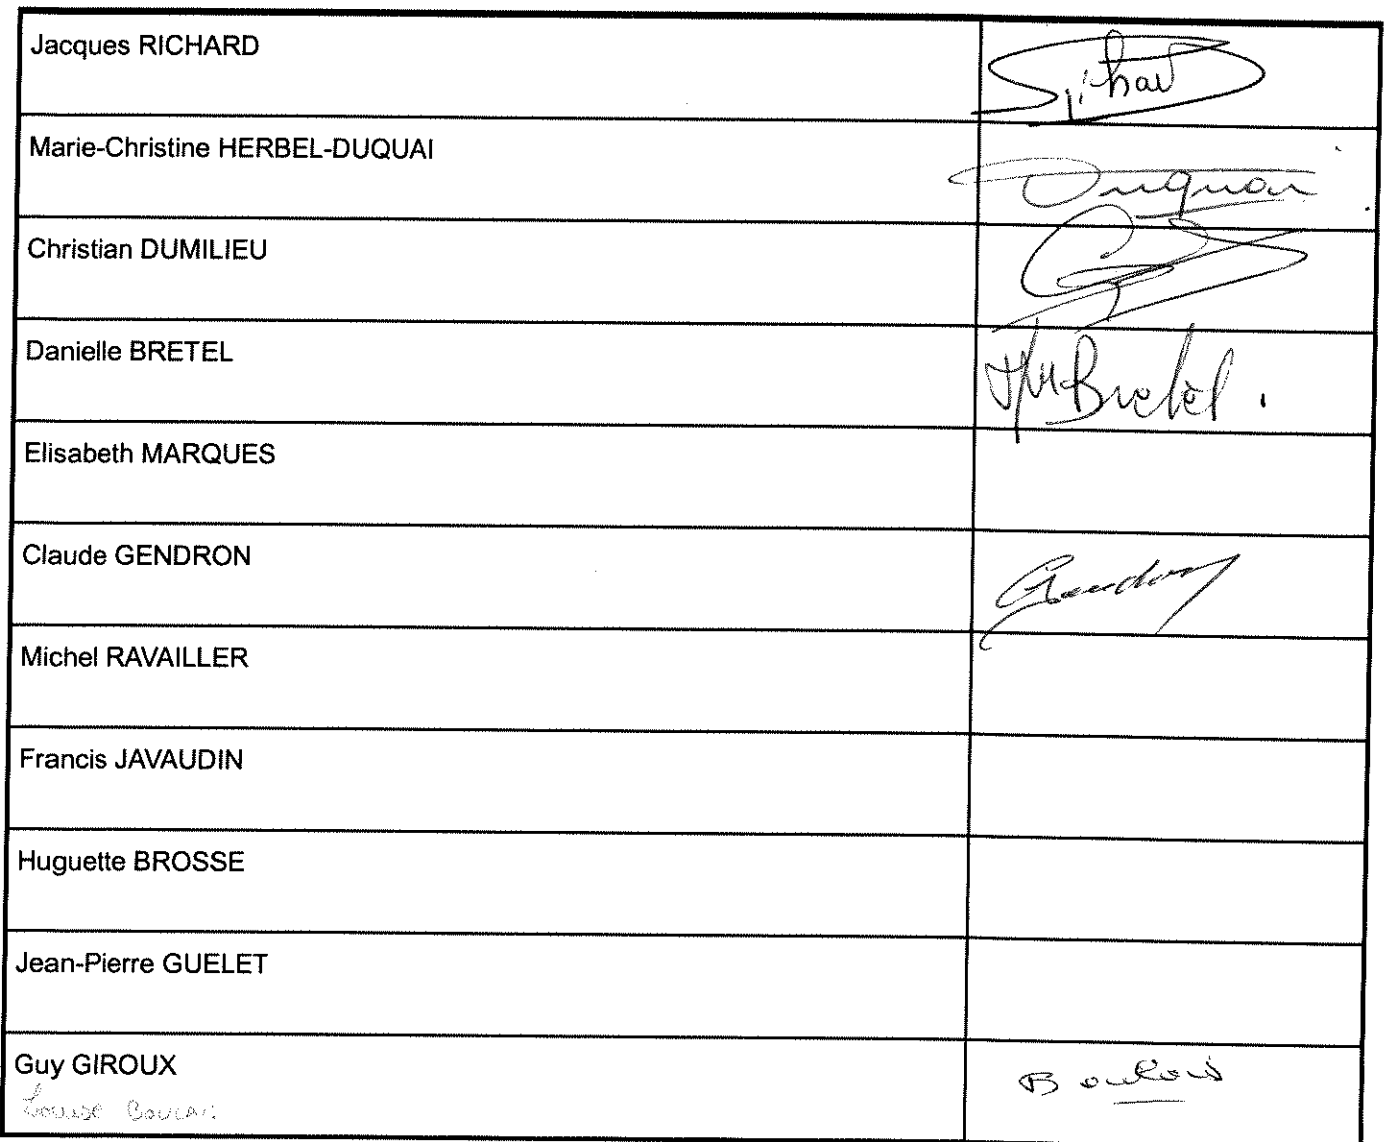 Jacques RICHARD
Marie-Christine HERBEL-DUQUAI
Duquai
Christian DUMILIEU
Danielle BRETEL
Bretel
Elisabeth MARQUES
Claude GENDRON
Gendron
Michel RAVAILLER
Francis JAVAUDIN
Huguette BROSSE
Jean-Pierre GUELET
Guy GIROUX
Louise